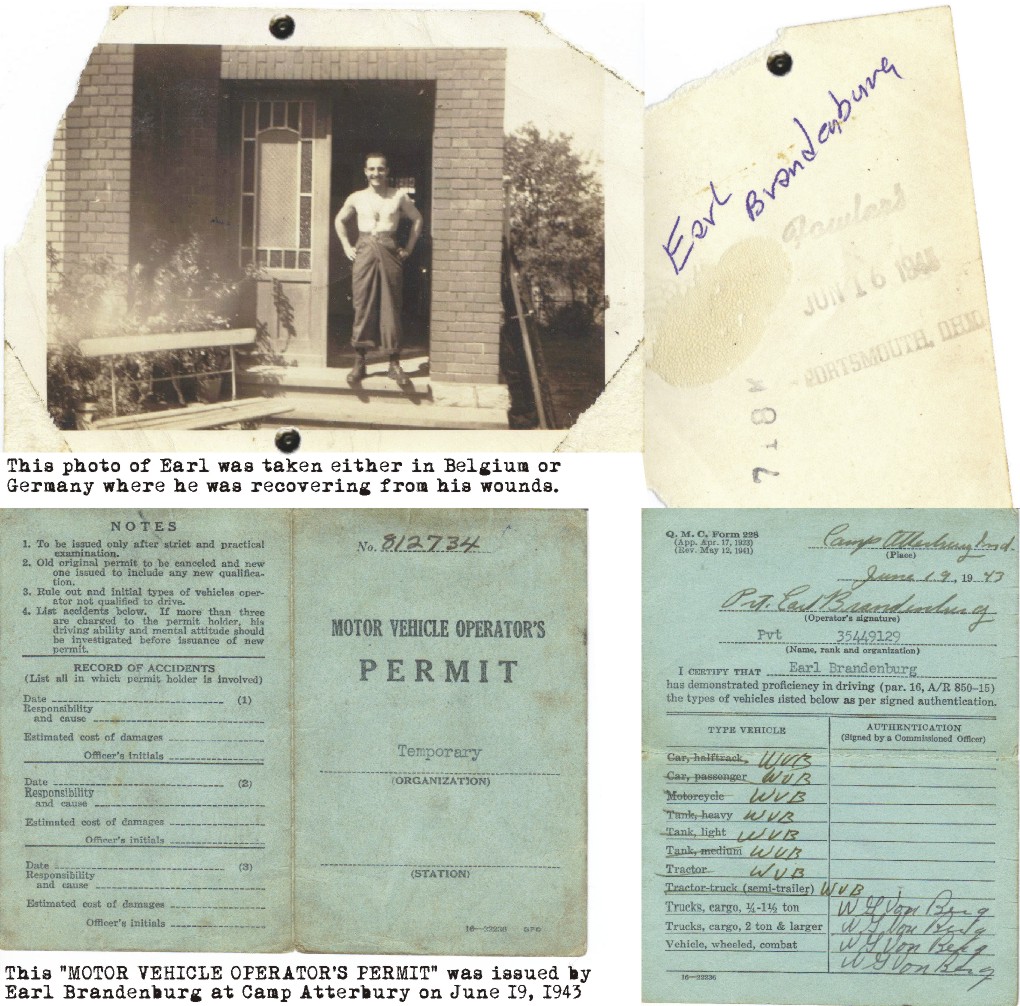 Earl
Brandenburg
Rowlers
JUN 16 1945
PORTSMOUTH, OHIO
718M
This photo of Earl was taken either in Belgium or
Germany where he was recovering from his wounds.
NOTES
1. To be issued only after strict and practical
examination.
2. Old original permit to be canceled and new
one issued to include any new qualifica-
tion.
3. Rule out and initial types of vehicles oper-
ator not qualified to drive.
4. List accidents below. If more than three
are charged to the permit holder, his
driving ability and mental attitude should
be investigated before issuance of new
permit.
RECORD OF ACCIDENTS
(List all in which permit holder is involved)
Date (1)
Responsibility
and cause
Estimated cost of damages
Officer's initials
Date (2)
Responsibility
and cause
Estimated cost of damages
Officer's initials
Date (3)
Responsibility
and cause
Estimated cost of damages
Officer's initials
No. 812734
MOTOR VEHICLE OPERATOR'S
PERMIT
Temporary
(ORGANIZATION)
(STATION)
16—22236 GPO
Q. M. C. Form 228
(App. Apr. 17, 1923)
(Rev. May 12, 1941)
Camp Atterbury Ind.
(Place)
June 19, 1943
Pvt. Earl Brandenburg
(Operator's signature)
Pvt 35449129
(Name, rank and organization)
I CERTIFY THAT Earl Brandenburg
has demonstrated proficiency in driving (par. 16, A/R 850–15)
the types of vehicles listed below as per signed authentication.
TYPE VEHICLE
AUTHENTICATION
(Signed by a Commissioned Officer)
Car, halftrack, WVB
Car, passenger WVB
Motorcycle WVB
Tank, heavy WVB
Tank, light WVB
Tank, medium WVB
Tractor WVB
Tractor-truck (semi-trailer) WVB
Trucks, cargo, ¼-1½ ton W G Von Berg
Trucks, cargo, 2 ton & larger W G Von Berg
Vehicle, wheeled, combat W G Von Berg
W G Von Berg
16—22236
This "MOTOR VEHICLE OPERATOR'S PERMIT" was issued by
Earl Brandenburg at Camp Atterbury on June 19, 1943